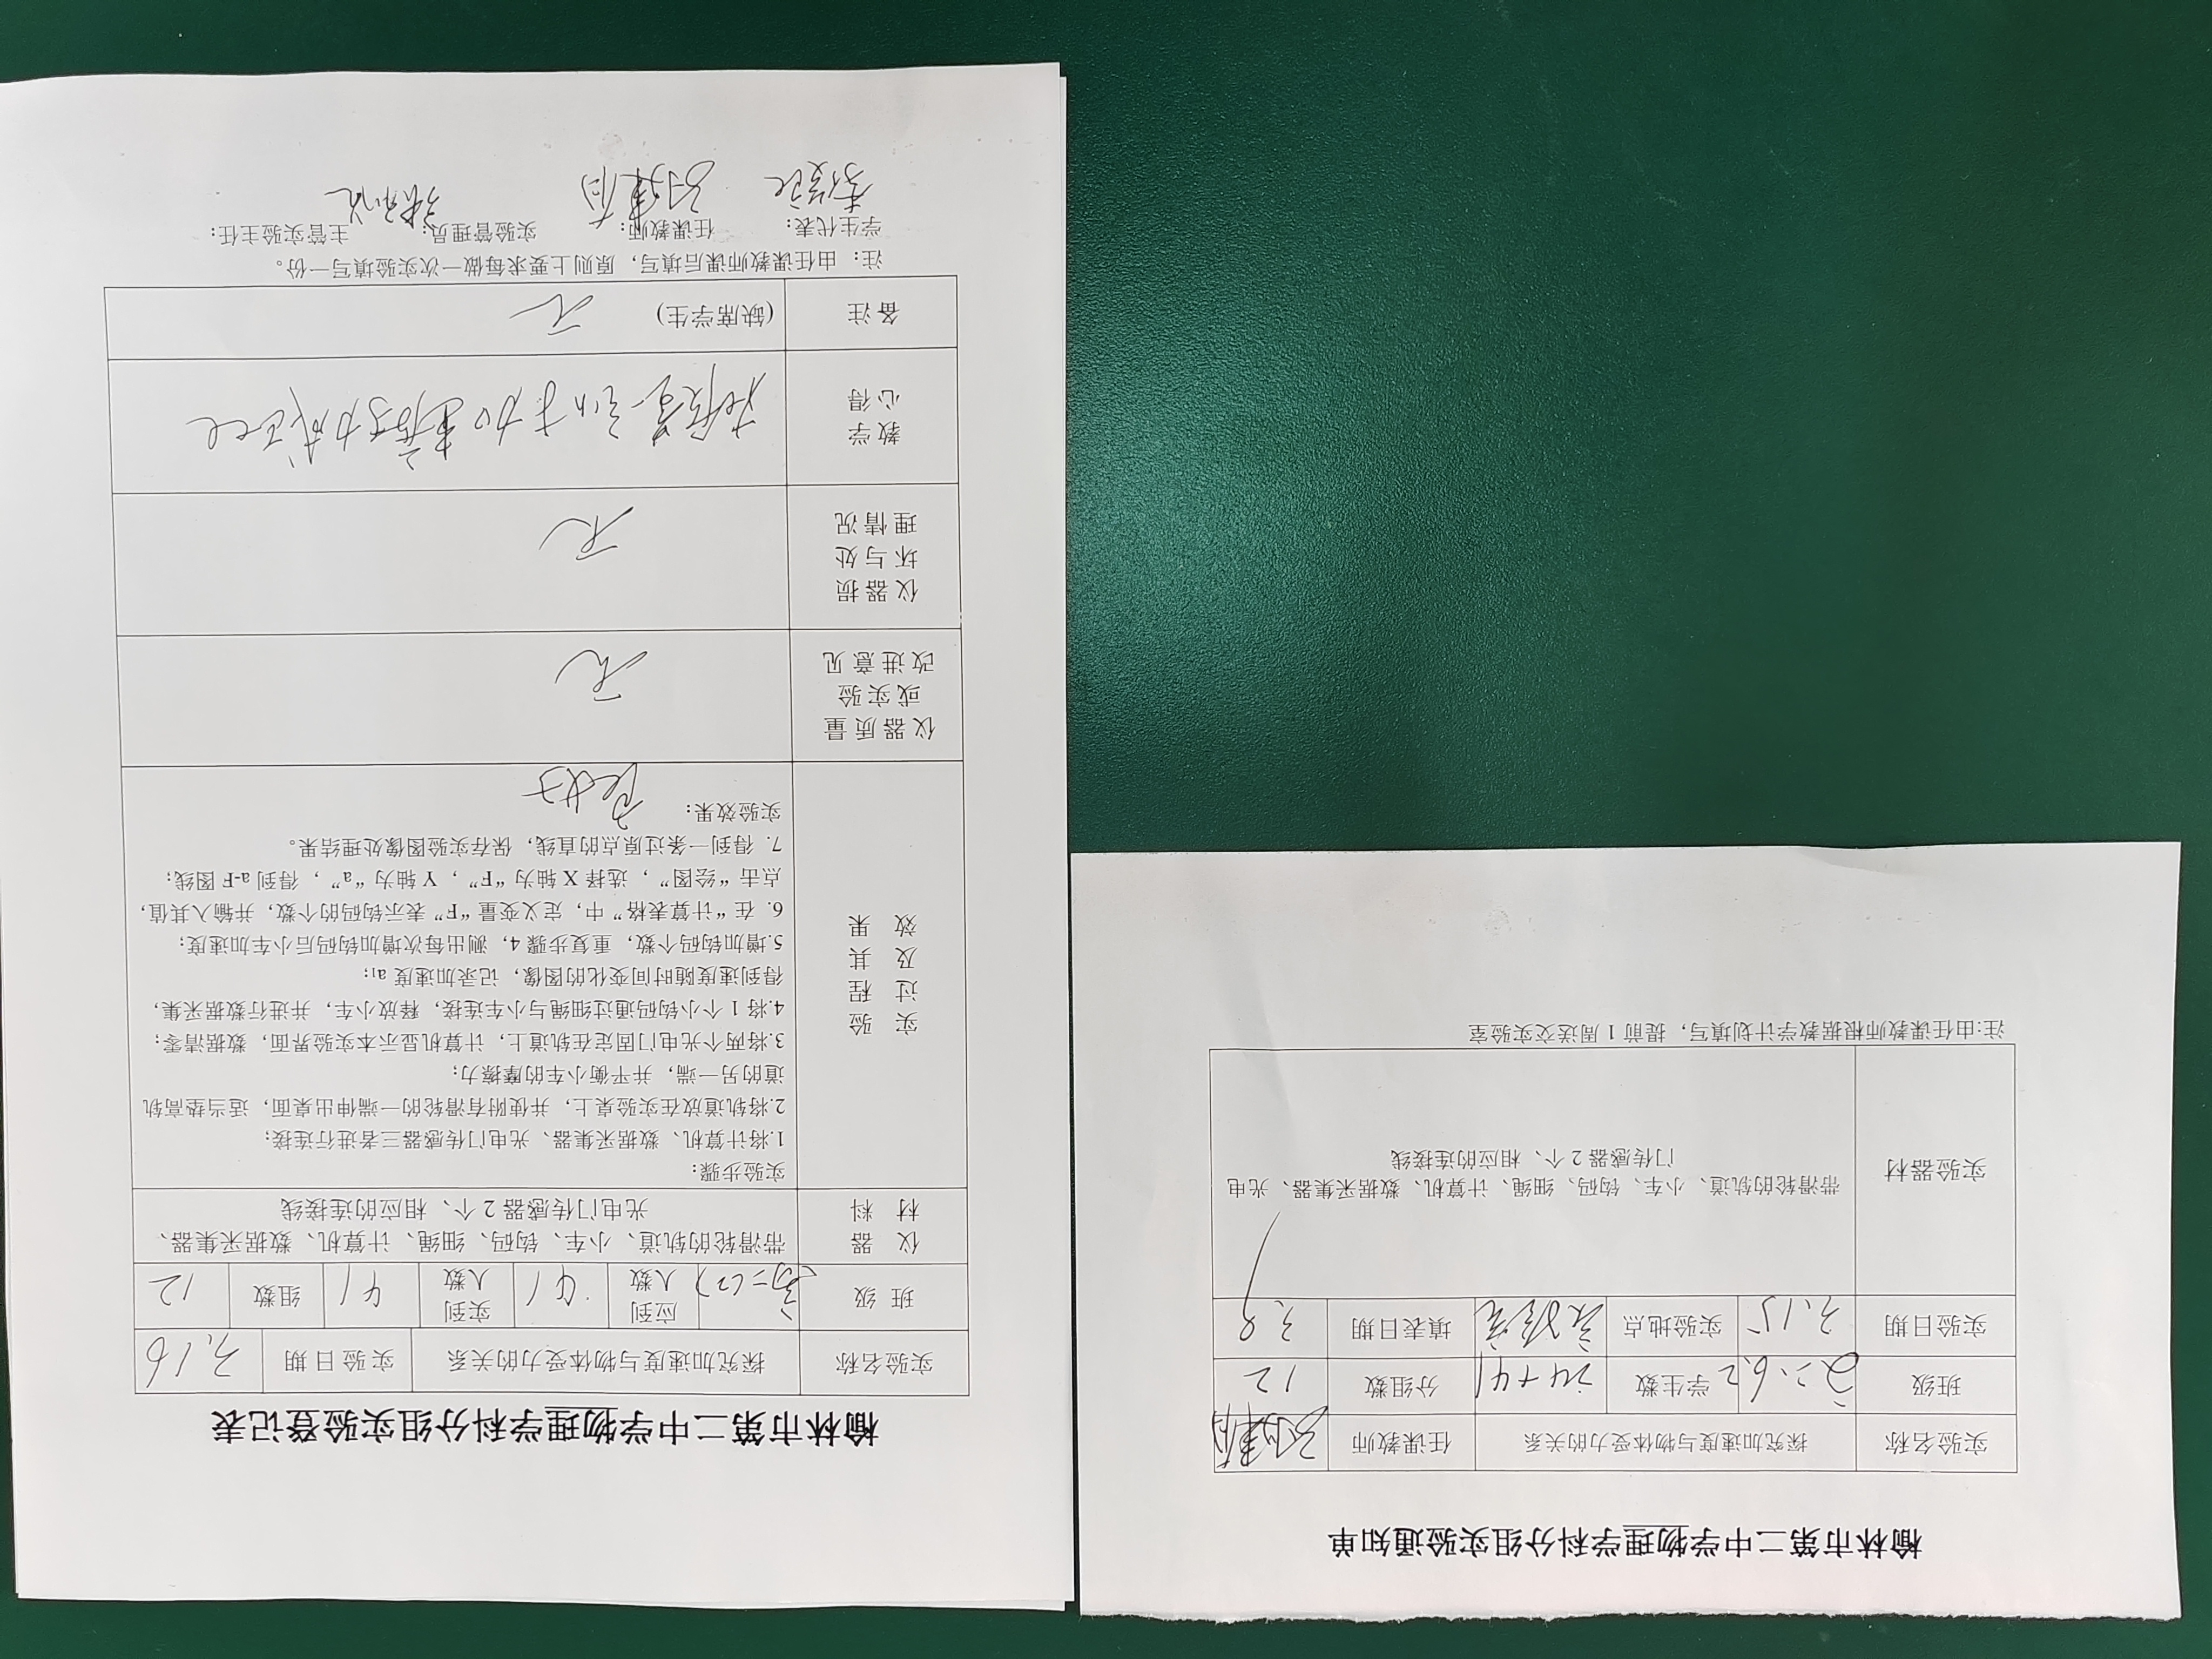 榆林市第二中学物理学科分组实验通知单
实验名称 探究加速度与物体受力的关系 任课教师
班级 学生数 24+41 分组数 12
实验日期 3.15 实验地点 实验室 填表日期 3.8
实验器材 带滑轮的轨道、小车、钩码、细绳、计算机、数据采集器、光电
门传感器 2 个、相应的连接线
注:由任课教师根据教学计划填写，提前 1 周送交实验室
榆林市第二中学物理学科分组实验登记表
实验名称 探究加速度与物体受力的关系 实验日期 3.16
班 级 高二(2) 应到人数 41 实到人数 41 组数 12
仪 器
材 料
带滑轮的轨道、小车、钩码、细绳、计算机、数据采集器、
光电门传感器 2 个、相应的连接线
实 验
过 程
及 其
效 果
实验步骤：
1.将计算机、数据采集器、光电门传感器三者进行连接；
2.将轨道放在实验桌上，并使附有滑轮的一端伸出桌面，适当垫高轨
道的另一端，并平衡小车的摩擦力；
3.将两个光电门固定在轨道上，计算机显示本实验界面，数据清零；
4.将 1 个小钩码通过细绳与小车连接，释放小车，并进行数据采集，
得到速度随时间变化的图像，记录加速度 a₁；
5.增加钩码个数，重复步骤 4，测出每次增加钩码后小车加速度；
6. 在“计算表格”中，定义变量“F”表示钩码的个数，并输入其值，
点击“绘图”，选择 X 轴为“F”，Y 轴为“a”，得到 a-F 图线；
7. 得到一条过原点的直线，保存实验图像处理结果。
实验效果： 良好
仪器质量
或实验
改进意见
无
仪器损
坏与处
理情况
无
教学
心得
质量一定时 加速度与力成正比
备注 (缺席学生) 无
注：由任课教师课后填写，原则上要求每做一次实验填写一份。
学生代表： 任课教师： 实验管理员： 主管实验主任：